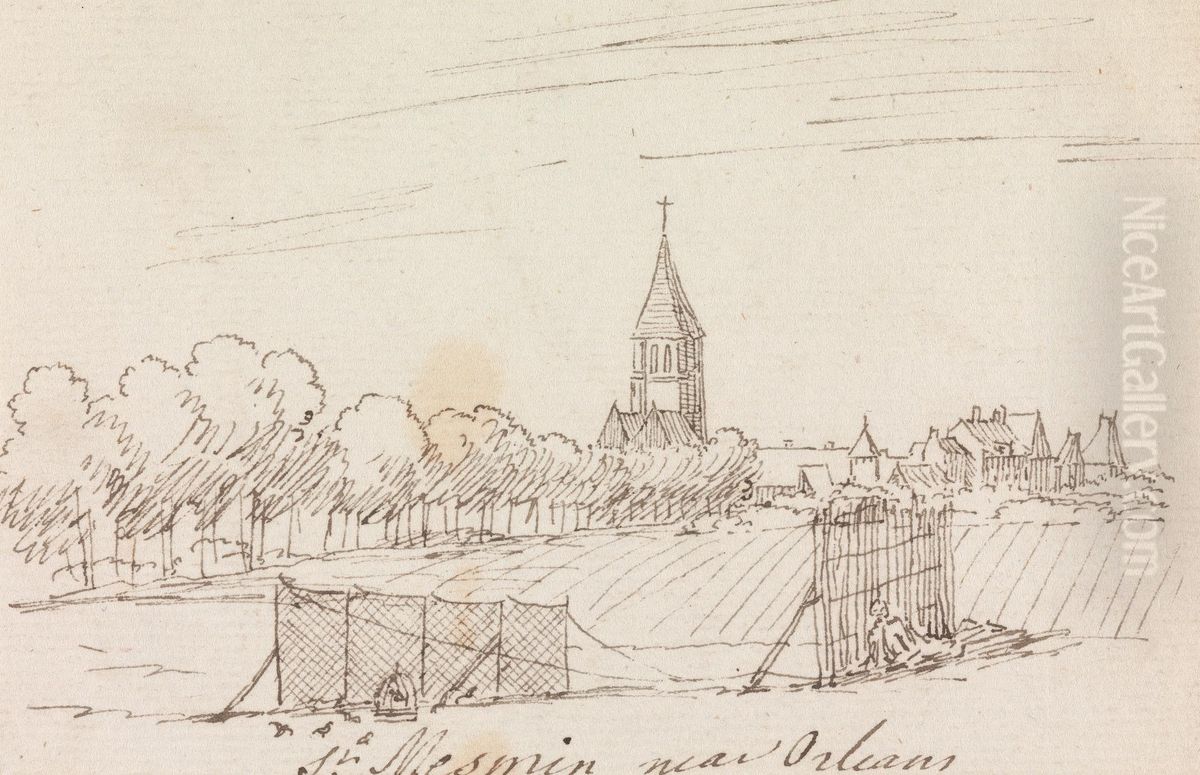 St. Mesmin near Orleans
NiceArtGallery.com